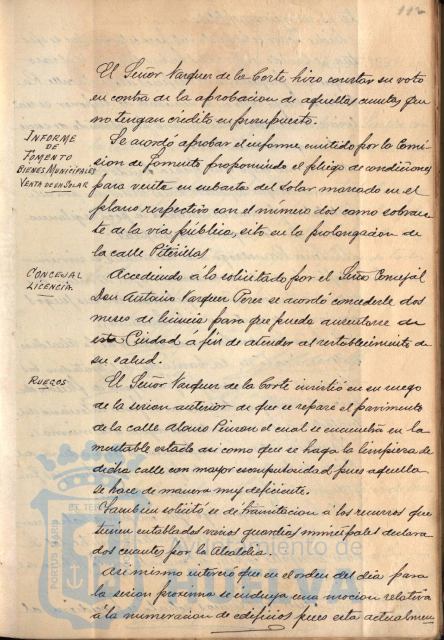 112
El Señor Vazquez de la Corte hizo constar su voto
en contra de la aprobacion de aquellas cuentas que
no tengan credito en presupuesto.
INFORME
DE
FOMENTO
BIENES MUNICIPALES
VENTA DE UN SOLAR
Se acordó aprobar el informe emitido por la Comi
sion de Fomento proponiendo el pliego de condiciones
para venta en subasta del solar marcado en el
plano respectivo con el número dos como sobran
te de la via pública, sito en la prolongacion de
la calle Piterillas
CONCEJAL
LICENCIA.
Accediendo á lo solicitado por el Señor Concejal
Don Antonio Vazquez Perez se acordó concederle dos
meses de licencia para que pueda ausentarse de
esta Ciudad á fin de atender al restablecimiento de
su salud.
RUEGOS
El Señor Vazquez de la Corte insistió en su ruego
de la sesion anterior de que se repare el pavimento
de la calle Alonso Pinzon el cual se encuentra en la
mentable estado asi como que se haga la limpieza de
dicha calle con mayor escrupulosidad pues aquella
se hace de manera muy deficiente.
Tambien solicitó se dé tramitacion á los recursos que
tienen entablados varios guardias municipales declara
dos cesantes por la Alcaldia.
Asi mismo interesó que en el orden del dia para
la sesion proxima se incluya una mocion relativa
á la numeracion de edificios pues esta actualmen
PORTUS MARIS